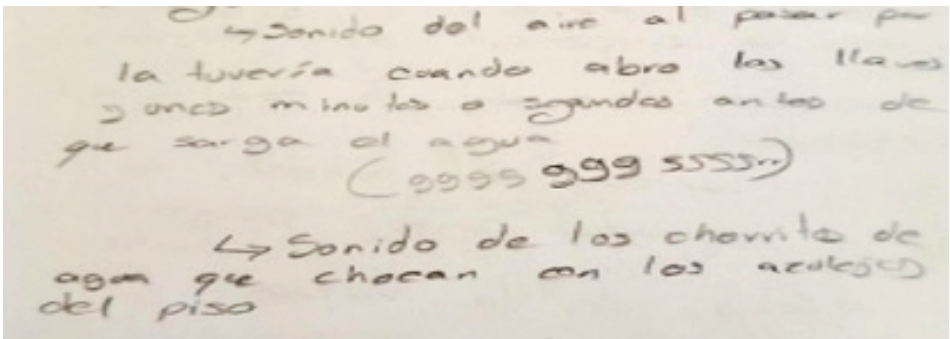 ↳ Sonido del aire al pasar por
la tuvería cuando abro las llaves
y unos minutos o segundos antes de
que sarga el agua
(9999 999 sssss..)
↳ Sonido de los chorrito de
agua que chocan con los azulejos
del piso